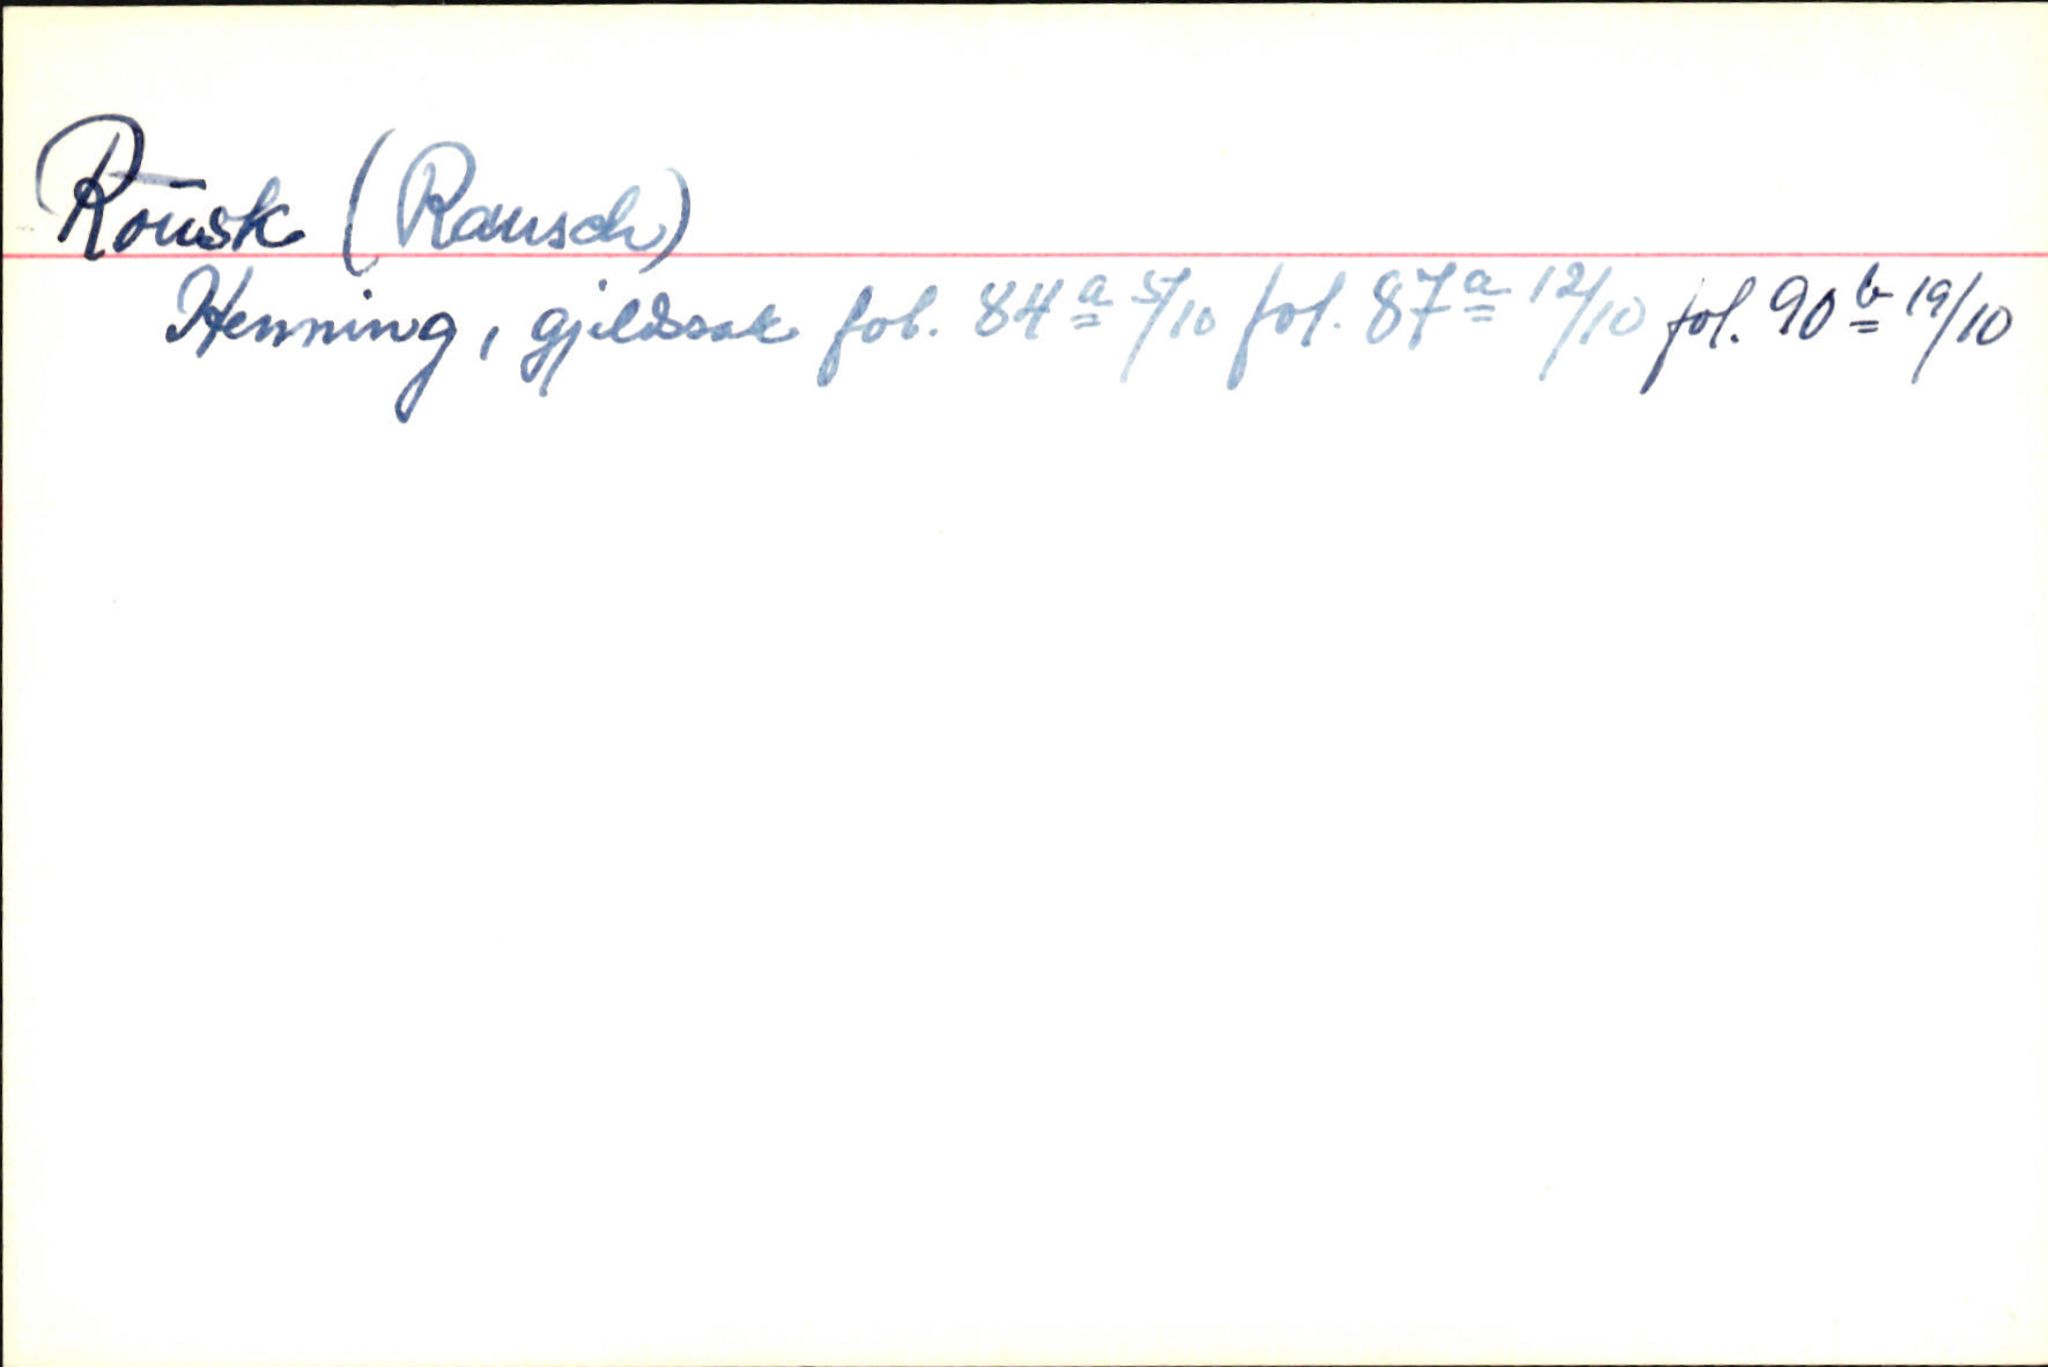 Rousk (Rausch)
Henning, gjeldssak fol. 84a 5/10 fol. 87a 12/10 fol. 90b 19/10